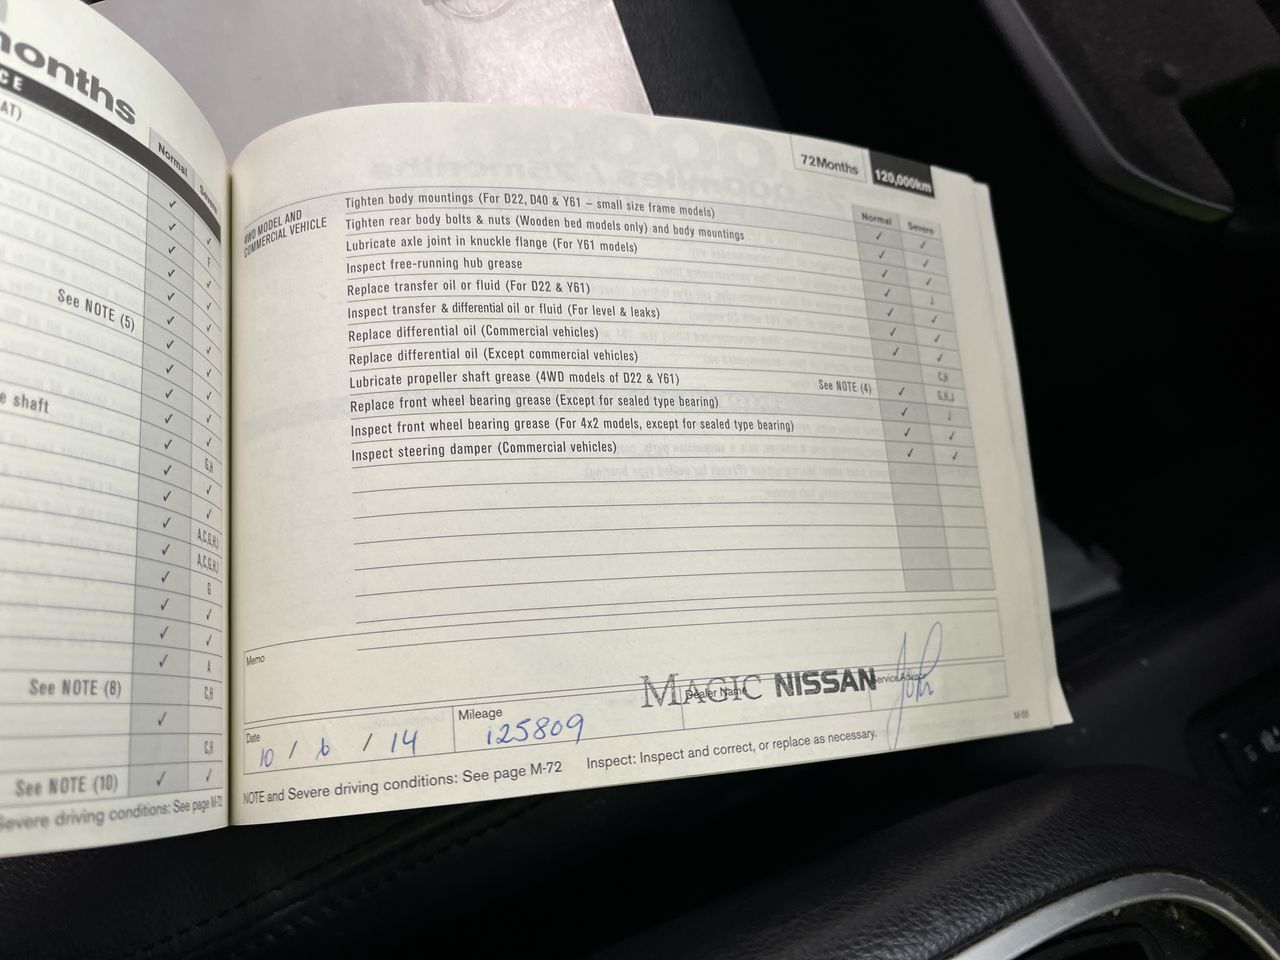 months
CE
AT)
Normal
Severe
✓
✓ ✓
✓ F
✓ ✓
✓ ✓
See NOTE (5) ✓ ✓
✓ ✓
✓ ✓
e shaft ✓ ✓
✓ ✓
✓ G,H
✓ ✓
✓ ✓
✓ A,C,G,H,I
✓ A,C,G,H,I
✓ G
✓ ✓
✓ ✓
✓ A
See NOTE (8) C,H
✓
C,H
See NOTE (10) ✓ ✓
Severe driving conditions: See page M-72
72Months 120,000km
Normal Severe
4WD MODEL AND
COMMERCIAL VEHICLE
Tighten body mountings (For D22, D40 & Y61 – small size frame models) ✓ ✓
Tighten rear body bolts & nuts (Wooden bed models only) and body mountings ✓ ✓
Lubricate axle joint in knuckle flange (For Y61 models) ✓ ✓
Inspect free-running hub grease ✓ J
Replace transfer oil or fluid (For D22 & Y61) ✓ ✓
Inspect transfer & differential oil or fluid (For level & leaks) ✓ ✓
Replace differential oil (Commercial vehicles) ✓ ✓
Replace differential oil (Except commercial vehicles) C,H
Lubricate propeller shaft grease (4WD models of D22 & Y61) See NOTE (4) ✓ G,H,J
Replace front wheel bearing grease (Except for sealed type bearing) ✓ J
Inspect front wheel bearing grease (For 4x2 models, except for sealed type bearing) ✓ ✓
Inspect steering damper (Commercial vehicles) ✓ ✓
Memo
Date 10 / 6 / 14
Mileage 125809
Dealer Name MAGIC NISSAN
Service Advisor
NOTE and Severe driving conditions: See page M-72 Inspect: Inspect and correct, or replace as necessary.
M-55